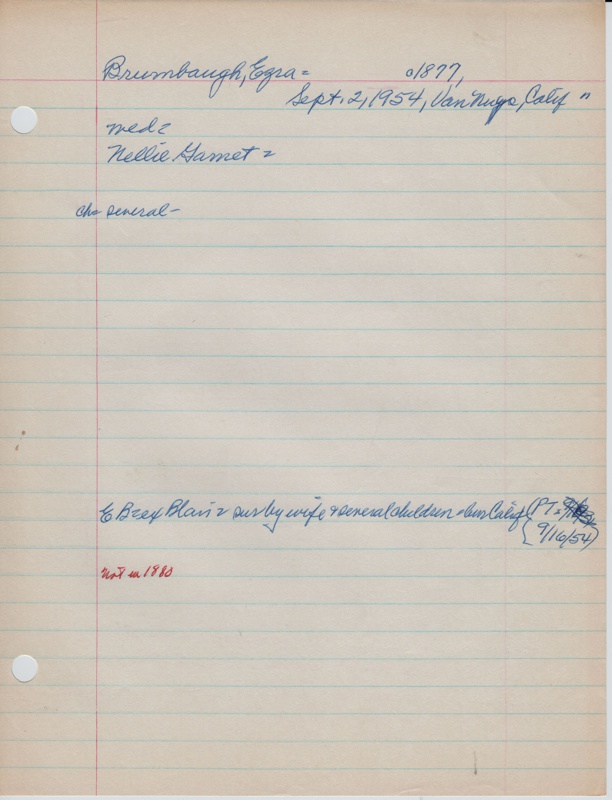 Brumbaugh, Ezra = 01877,
Sept. 2, 1954, Van Nuys, Calif "
med =
Nellie Garnet =
ch = several -
E Bzex Blair = sur by wife & several children - bur Calif (PT =
9/16/54)
Not in 1880